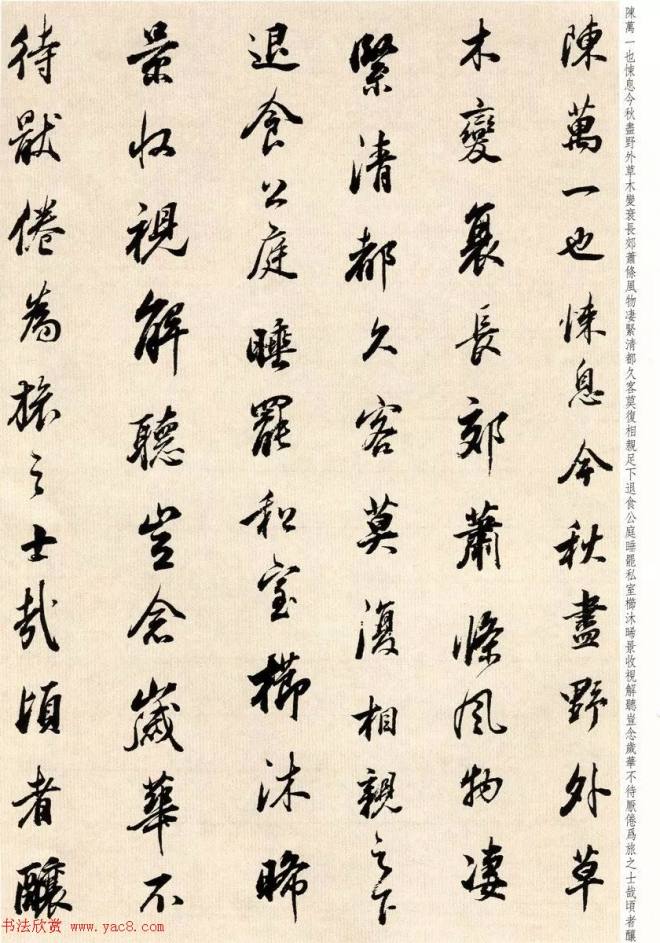 陳萬一也悚息今秋盡野外草木變衰長郊蕭條風物凄緊清都久客莫復相親足下退食公庭睡罷私室櫛沐晞景收視解聽豈念歲華不待厭倦爲旅之士哉頃者釀
陳萬一也悚息今秋盡野外草
木變衰長郊蕭條風物凄
緊清都久客莫復相親足下
退食公庭睡罷私室櫛沐晞
景收視解聽豈念歲華不
待厭倦為旅之士哉頃者釀
书法欣赏 www.yac8.com